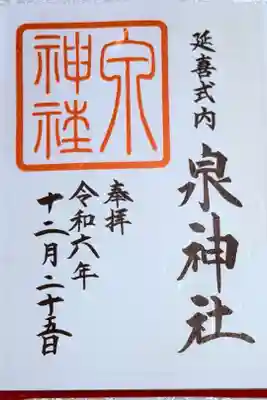 延喜式内
泉神社
泉神社
奉拝
令和六年
十二月二十五日